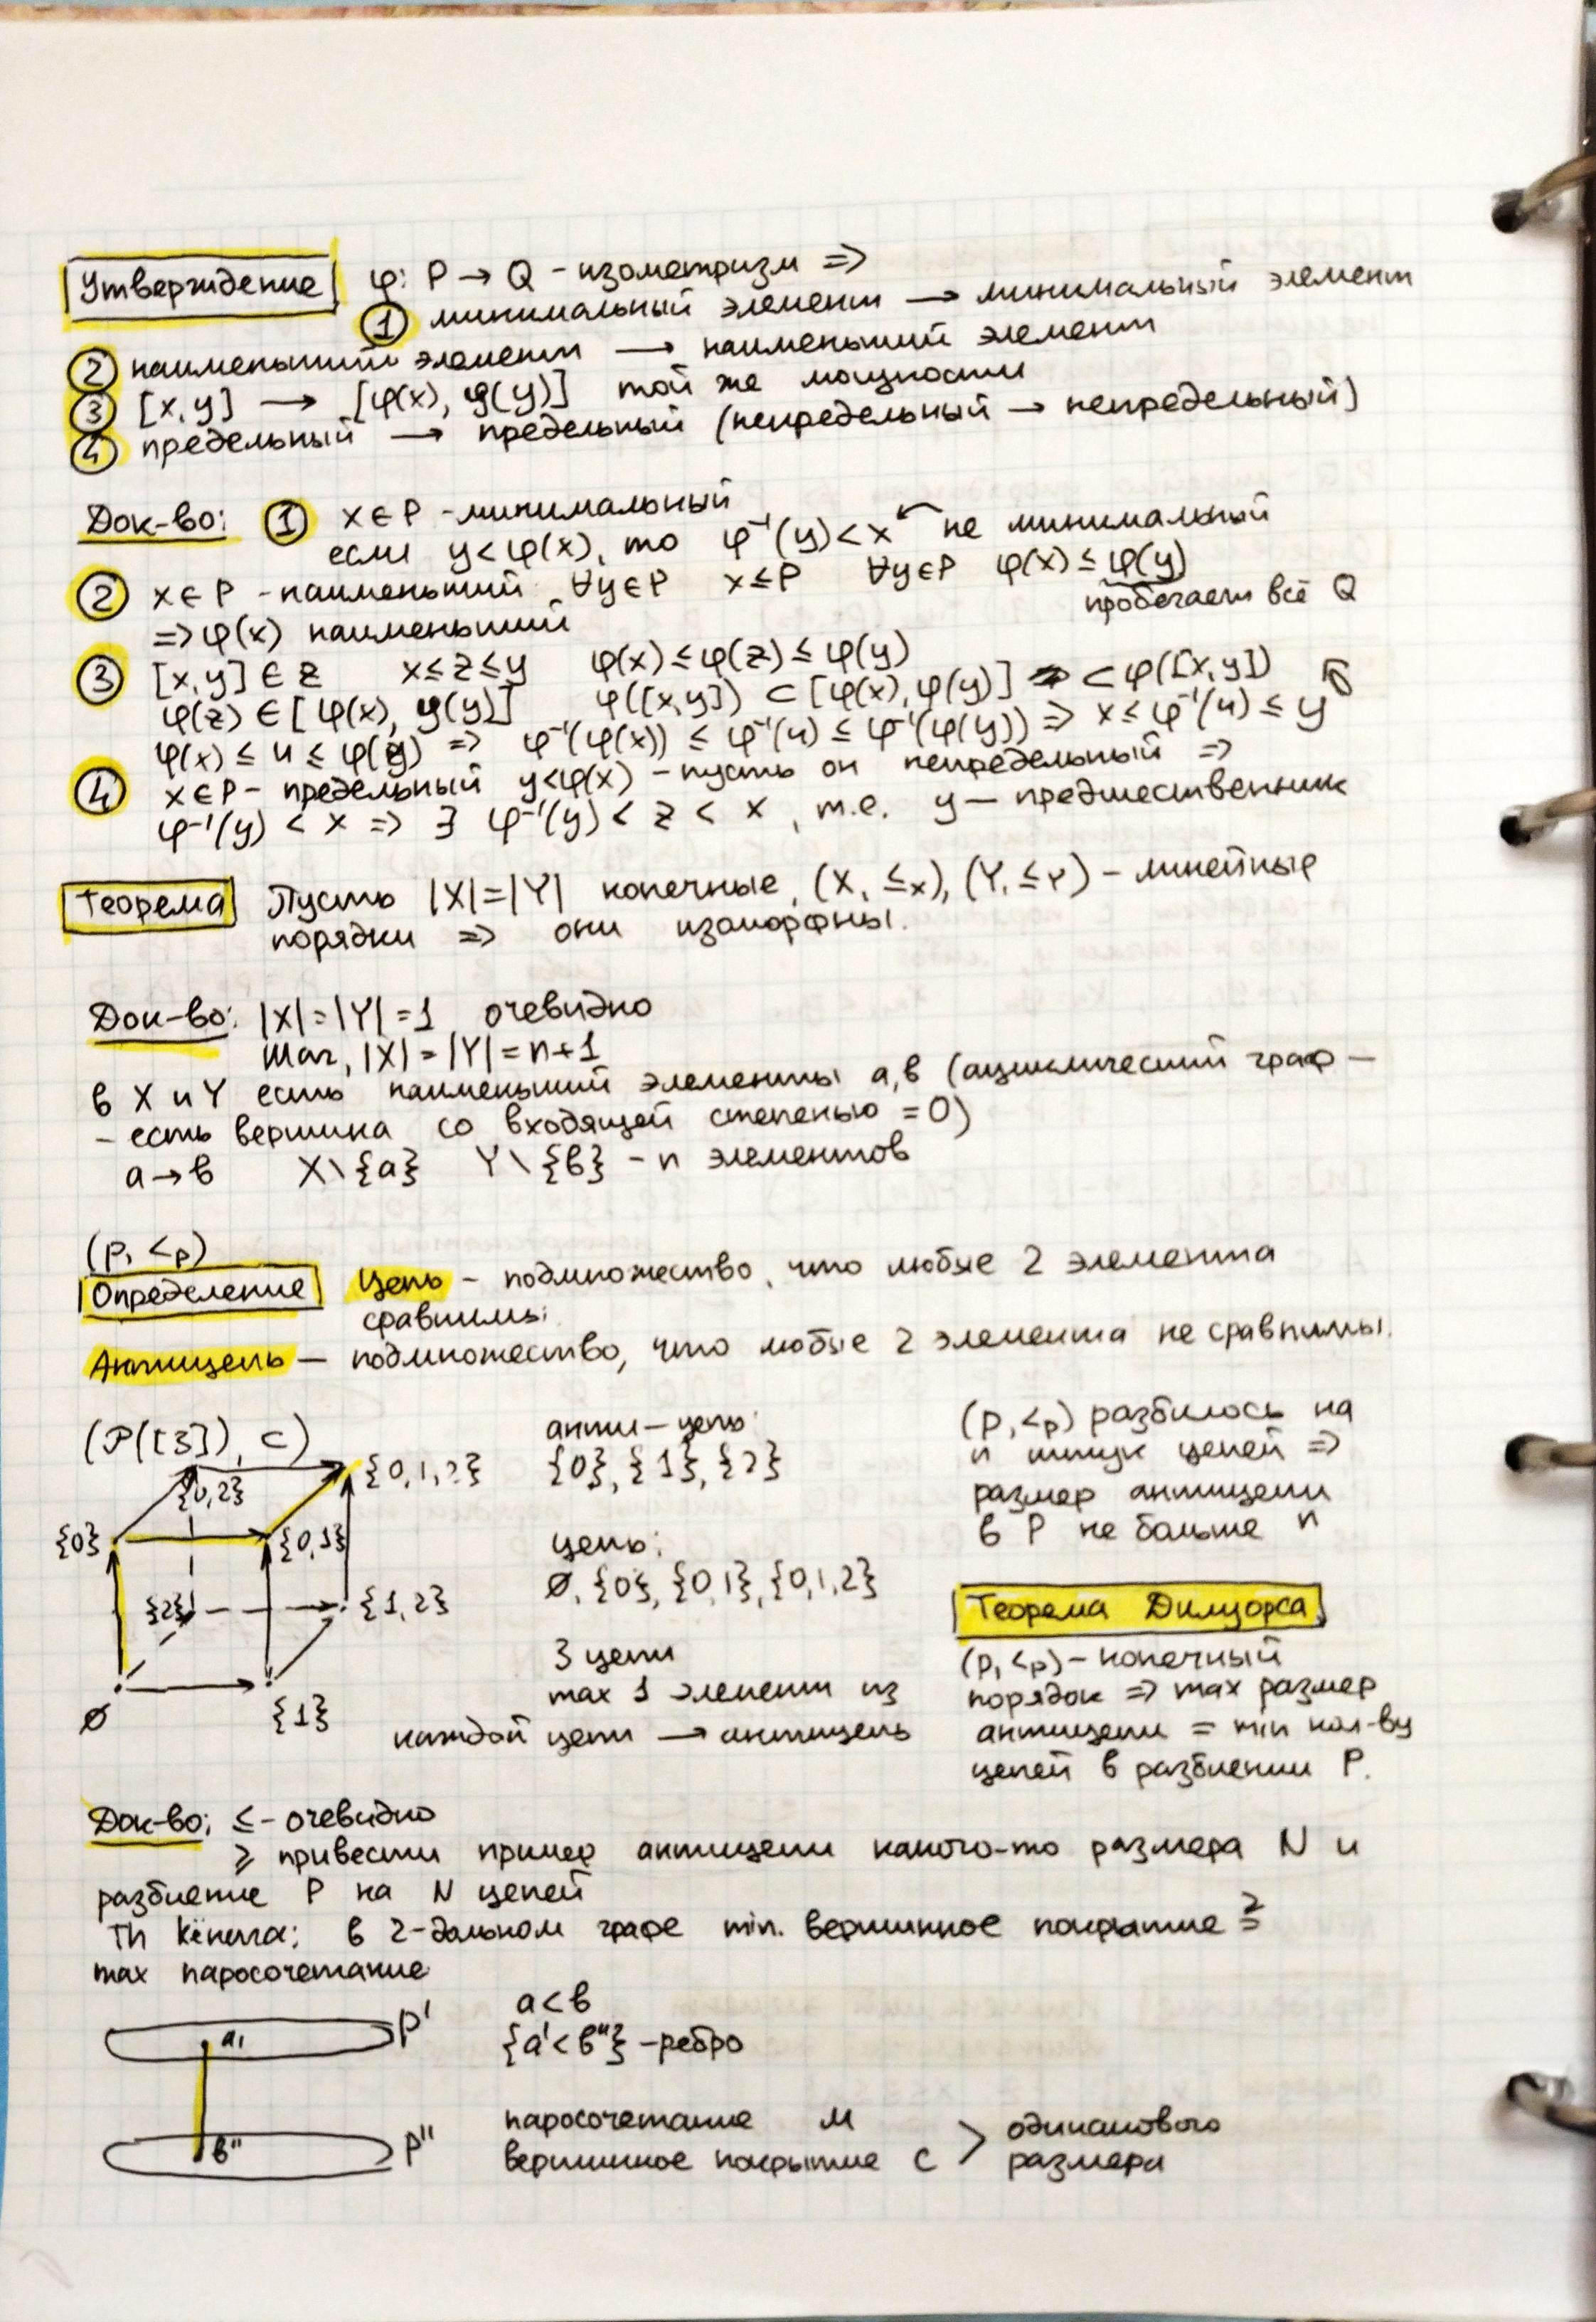 Утверждение φ: P → Q - изометризм =>
① минимальный элемент → минимальный элемент
② наименьший элемент → наименьший элемент
③ [x,y] → [φ(x), φ(y)] той же мощности
④ предельный → предельный (непредельный → непредельный)
Док-во: ① x∈P - минимальный
если y<φ(x), то φ⁻¹(y)<x не минимальный
② x∈P - наименьший ∀y∈P x≤P ∀y∈P φ(x)≤φ(y)
пробегает всё Q
=> φ(x) наименьший
③ [x,y]∈z x≤z≤y φ(x)≤φ(z)≤φ(y)
φ(z)∈[φ(x), φ(y)] φ([x,y]) ⊂ [φ(x),φ(y)] ⊂ φ([x,y])
φ(x)≤u≤φ(y) => φ⁻¹(φ(x)) ≤ φ⁻¹(u) ≤ φ⁻¹(φ(y)) => x≤φ⁻¹(u)≤y
④ x∈P - предельный y<φ(x) - пусть он непредельный =>
φ⁻¹(y) < x => ∃ φ⁻¹(y) < z < x, т.е. y — предшественник
Теорема Пусть |X|=|Y| конечные, (X, ≤x), (Y, ≤Y) - линейные
порядки => они изоморфны.
Док-во: |X|=|Y|=1 очевидно
Шаг, |X|=|Y|=n+1
в X и Y есть наименьший элементы a,b (ациклический граф —
- есть вершина со входящей степенью =0)
a→b X\{a} Y\{b} - n элементов
(P, <p)
Определение Цепь - подмножество, что любые 2 элемента
сравнимы.
Антицепь — подмножество, что любые 2 элемента не сравнимы.
(P([3]), ⊂)
{0,2} {0,1,2}
{0} {0,1}
{2} {1,2}
∅ {1}
анти-цепь:
{0}, {1}, {2}
цепь:
∅, {0}, {0,1}, {0,1,2}
3 цепи
max 1 элемент из
каждой цепи → антицепь
(P, <p) разбилось на
n штук цепей =>
размер антицепи
в P не больше n
Теорема Дилуорса
(P, <p) - конечный
порядок => max размер
антицепи = min кол-ву
цепей в разбиении P.
Док-во: ≤ - очевидно
≥ привести пример антицепи какого-то размера N и
разбиение P на N цепей
Th Кёнига: в 2-дольном графе min. вершинное покрытие =
max паросочетание
a' P'
b'' P''
a<b
{a'<b''} - ребро
паросочетание M
вершинное покрытие C > одинакового
размера